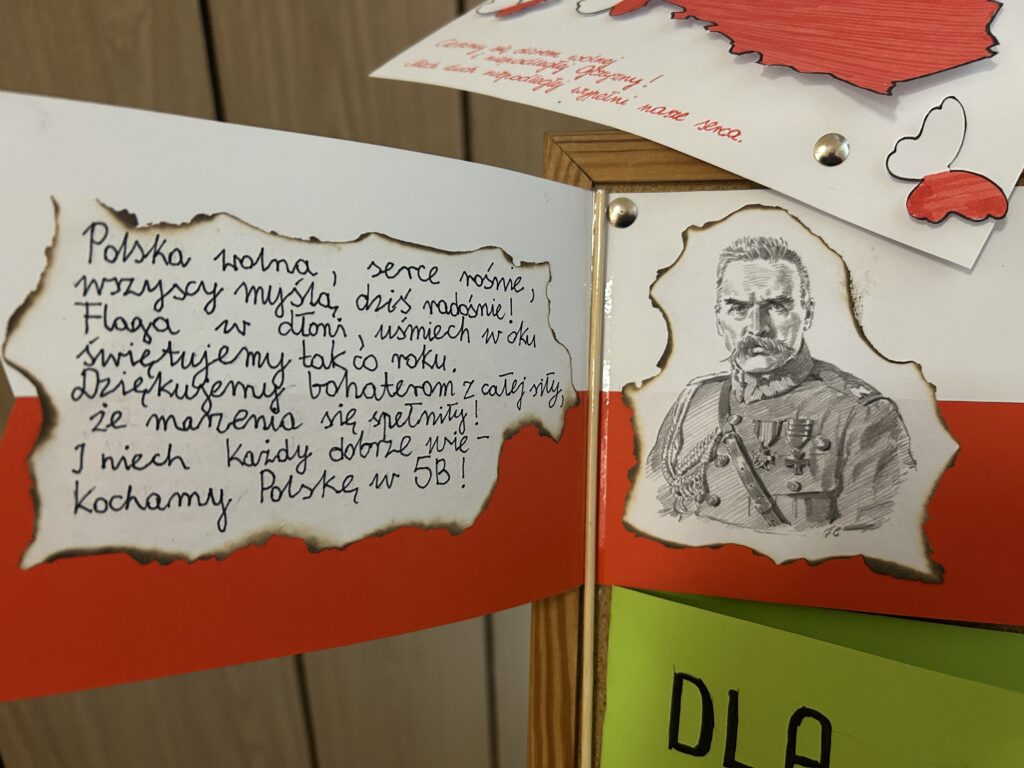 Cieszmy się darem wolnej
i niepodległej Ojczyzny!
Niech duch niepodległej wypełni nasze serca.
Polska wolna, serce rośnie,
wszyscy myślą dziś radośnie!
Flaga w dłoni, uśmiech w oku
świętujemy tak co roku.
Dziękujemy bohaterom z całej siły,
że marzenia się spełniły!
I niech każdy dobrze wie –
kochamy Polskę w 5B!
DLA